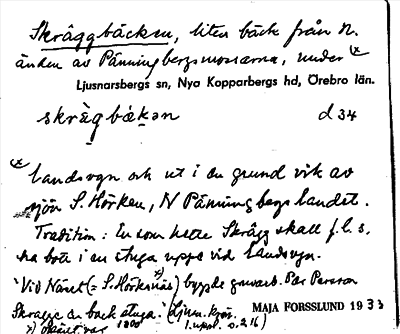 Skräggbäcken, liten bäck från N.
änden av Pänningbergsmossarna, under x)
Ljusnarsbergs sn, Nya Kopparbergs hd, Örebro län.
skrägbäkən d 34
x) landsvgn och ut i en grund vik av
sjön S. Hörken, N Pänningbergslandet.
Tradition: En som hette Skrägg skall f.h.s.
ha bott i en stuga uppe vid landsvgn.
'Vid Näset (= S. Hörksnäs) x) bygde gruvarb. Per Persson
Skragge en backstuga.' (Ljusn. kyrk.
1. uppl. s. 216)
MAJA FORSSLUND 1933
1800